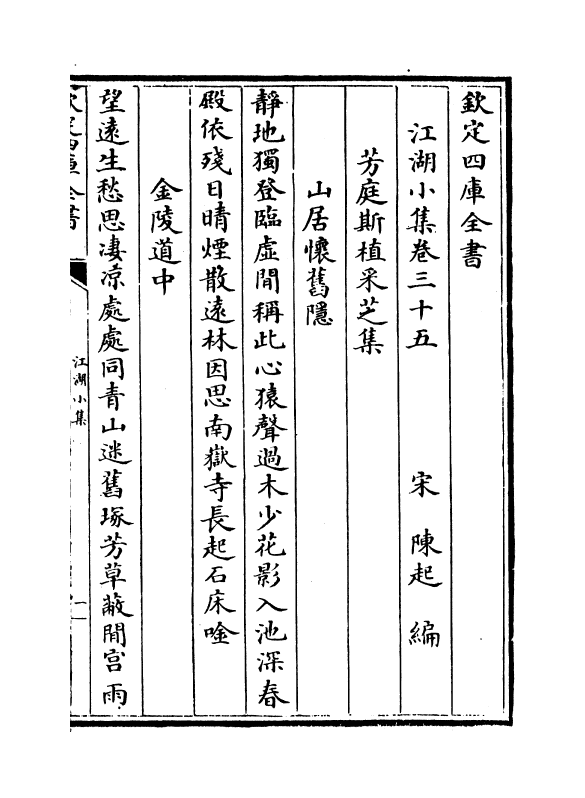 欽定四庫全書
江湖小集卷三十五　宋　陳起　編
芳庭斯植采芝集
山居懷舊隱
靜地獨登臨虛閒稱此心猿聲過木少花影入池深春
殿依殘日晴煙散遠林因思南嶽寺長起石床唫
金陵道中
望遠生愁思凄凉處處同青山迷舊塚芳草蔽閒宫雨
江湖小集
一